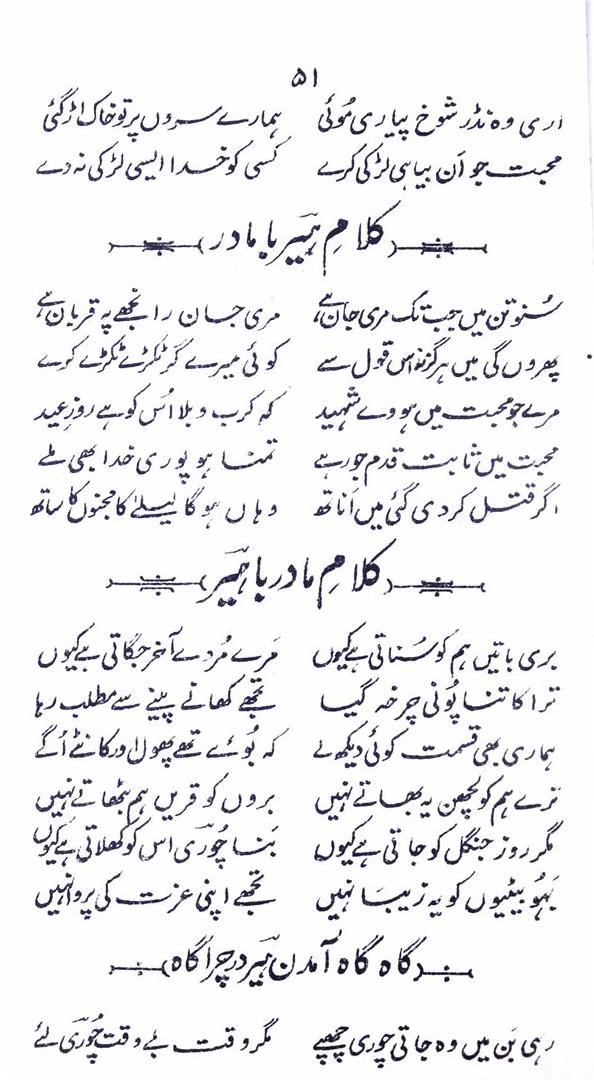 ۵۱
اری وہ نڈر شوخ پیاری مُوئی ہمارے سروں پر تو خاک اڑ گئی
محبت جو اَن بیاہی لڑکی کرے کسی کو خدا ایسی لڑکی نہ دے
کلامِ ہیر با مادر
سُنو تن میں جب تک مری جان ہے مری جان رانجھے پہ قربان ہے
پھروں گی میں ہرگز نہ اس قول سے کوئی میرے گر ٹکڑے ٹکڑے کرے
مرے جو محبت میں ہووے شہید کہ کرب و بلا اُس کو ہے روزِ عید
محبت میں ثابت قدم جو رہے تمنا ہو پوری خدا بھی ملے
اگر قتل کر دی گئی میں اَناتھ وہاں ہوگا لیلےٰ کا مجنوں کا ساتھ
کلامِ مادر با ہیر
بری باتیں ہم کو سُناتی ہے کیوں مَرے مُردے آخر جگاتی ہے کیوں
ترا کاتنا پُونی چرخہ گیا تجھے کھانے پینے سے مطلب رہا
ہماری بھی قسمت کوئی دیکھ لے کہ بُوئے تھے پھول اور کانٹے اُگے
ترے ہم کو لچھن یہ بھاتے نہیں بروں کو قریں ہم بٹھاتے نہیں
مگر روز جنگل کو جاتی ہے کیوں بَنا چُوری اس کو کھلاتی ہے کیوں
بہُو بیٹیوں کو یہ زیبا نہیں تجھے اپنی عزت کی پروا نہیں
گاہ گاہ آمدن ہیر در چراگاہ
رہی بَن میں وہ جاتی چوری چھپے مگر وقت بے وقت چُوری لئے